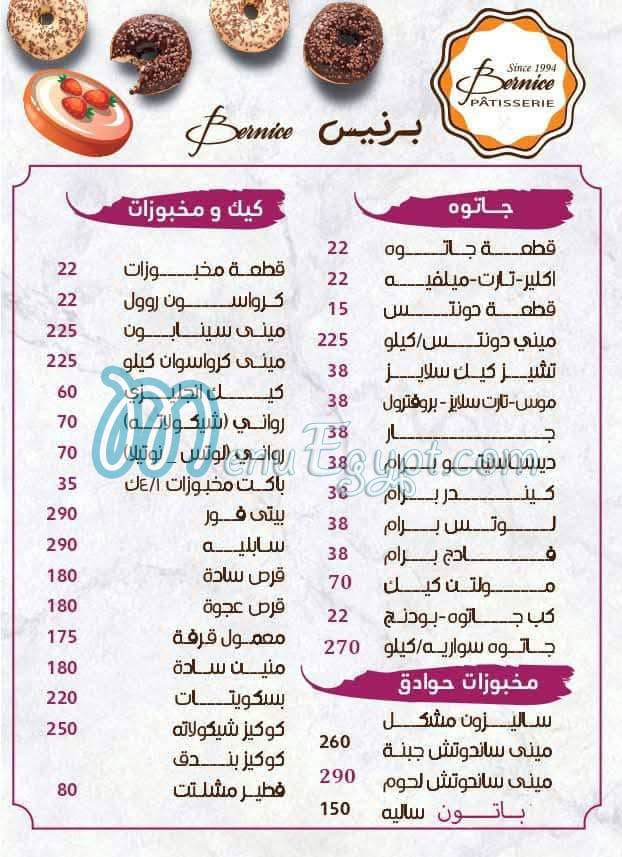 Since 1994
Bernice
PÂTISSERIE
برنيس Bernice
جاتوه
قطعة جاتوه 22
اكلير-تارت-ميلفيه 22
قطعة دونتس 15
ميني دونتس/كيلو 225
تشيز كيك سلايز 38
موس-تارت سلايز - بروفترول 38
جار 38
برام 38
كيندر برام 38
لوتس برام 38
فادج برام 38
مولتن كيك 70
كب جاتوه-بودنج 22
جاتوه سواريه/كيلو 270
مخبوزات حوادق
ساليزون مشكل
مينى ساندوتش جبنة 260
مينى ساندوتش لحوم 290
باتون ساليه 150
كيك و مخبوزات
قطعة مخبوزات 22
كرواسون روول 22
مينى سينابون 225
مينى كرواسوان كيلو 225
كيك انجليزي 60
رواني (شيكولاته) 70
رواني (لوتس _ نوتيلا) 70
باكت مخبوزات ١/٤ك 35
بيتى فور 290
سابليه 290
قرص سادة 180
قرص عجوة 180
معمول قرفة 175
منين سادة 180
بسكويتات 220
كوكيز شيكولاته 250
كوكيز بندق
فطير مشلتت 80
MenuEgypt.com